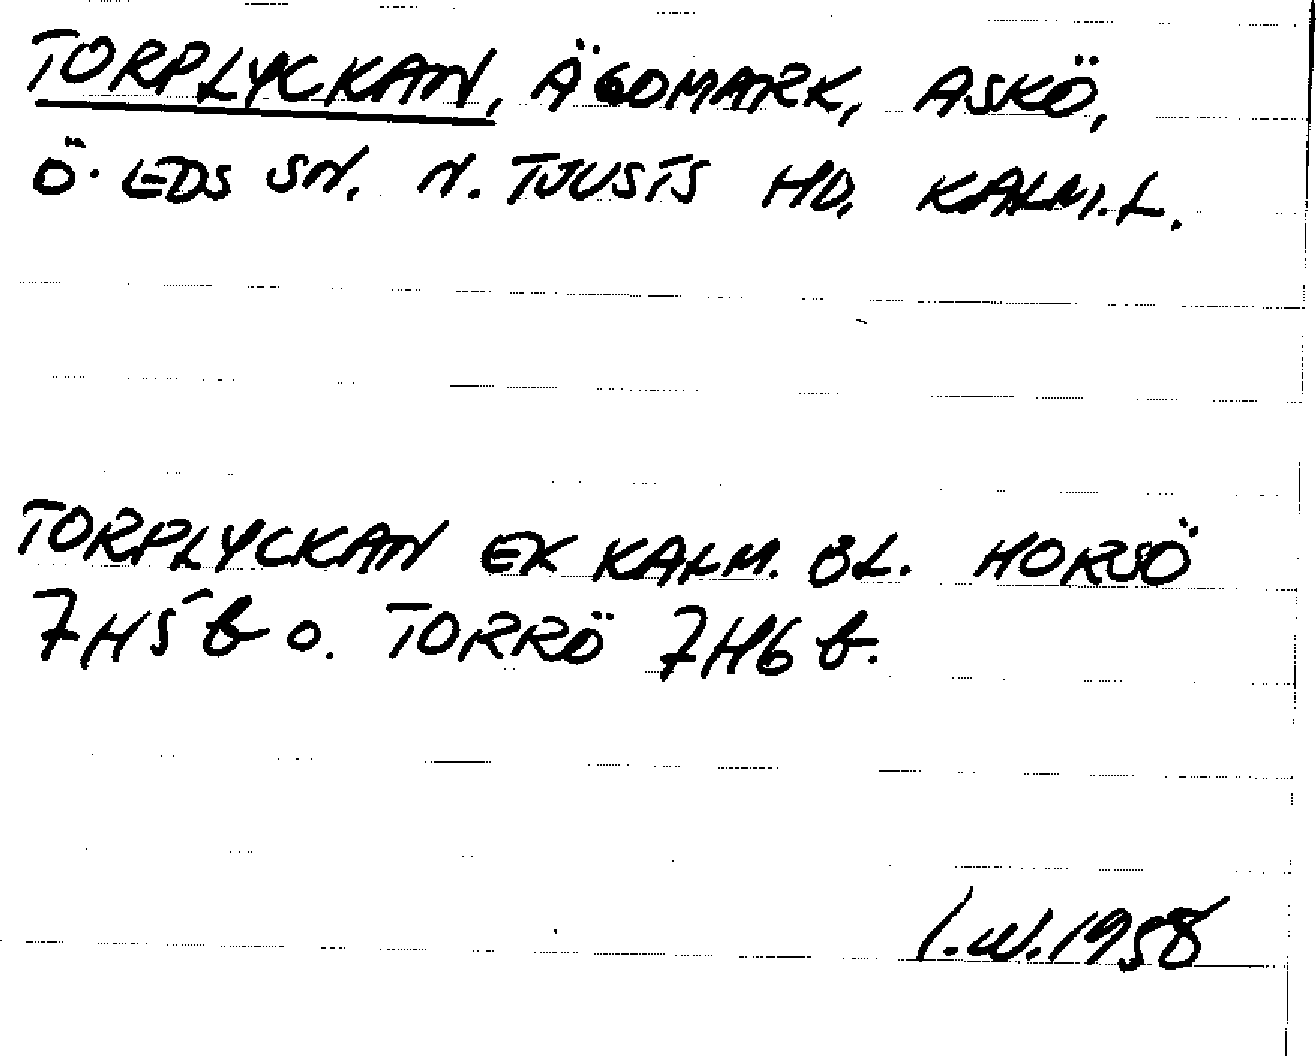 TORPLYCKAN, ÄGOMARK, ASKÖ,
Ö. EDS SN. N. TJUSTS HD, KALM.L.
TORPLYCKAN EK KALM. BL. HORSÖ
7H5b o. TORRÖ 7H6b.
I.W.1958